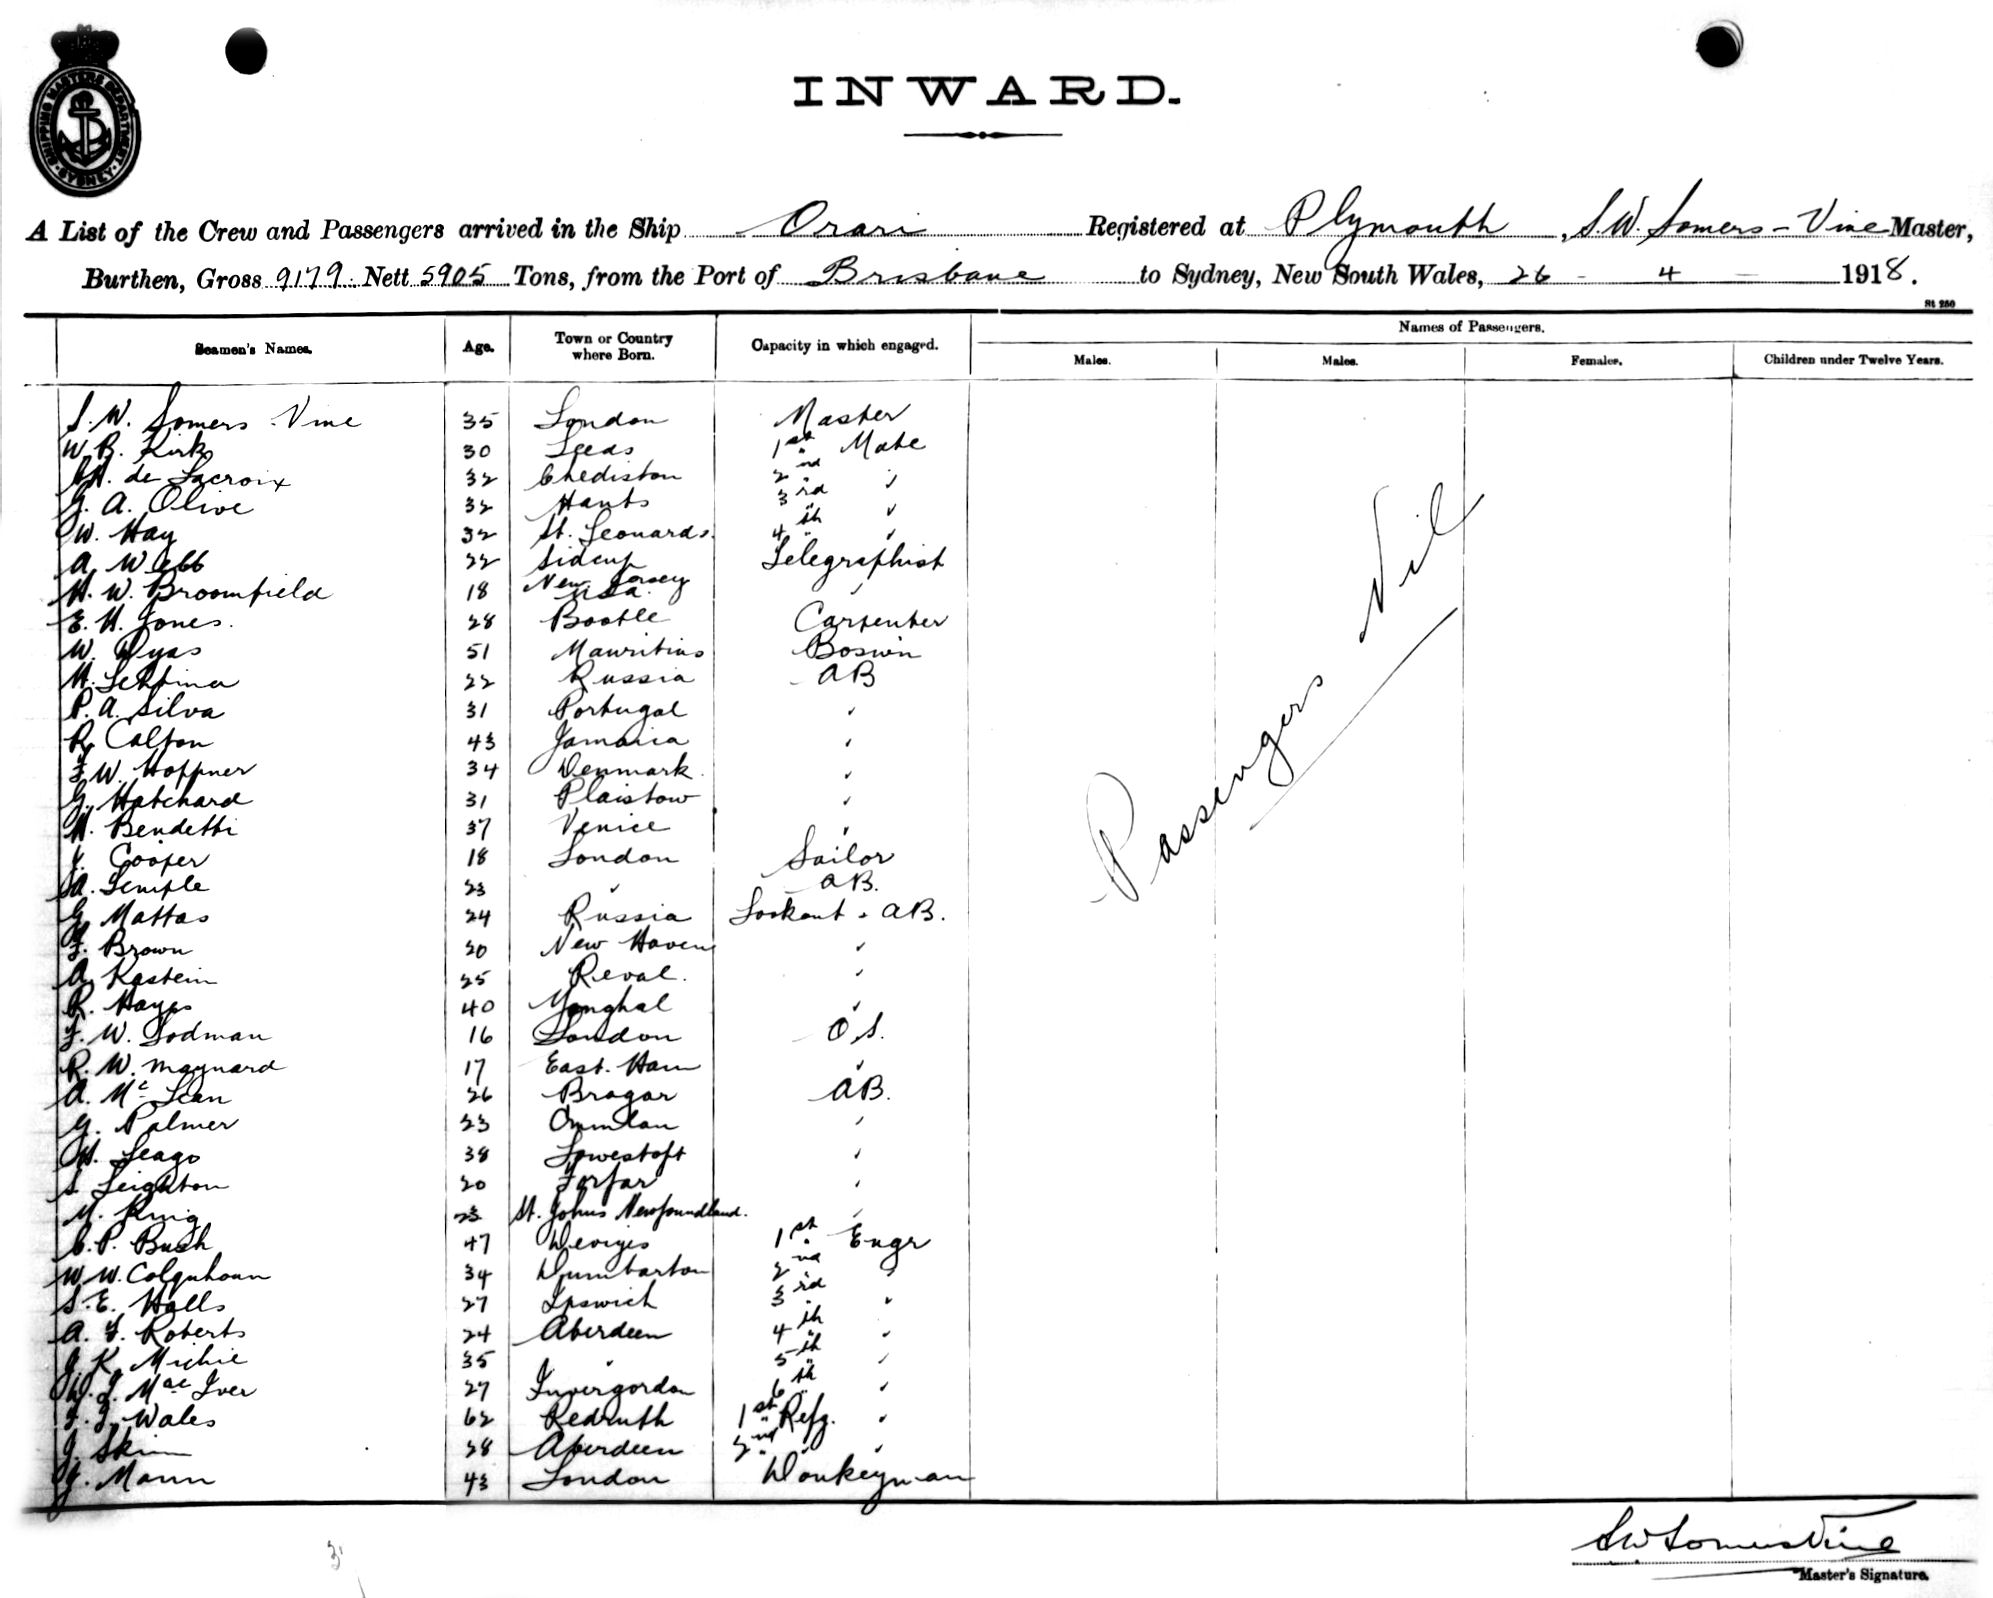 SHIPPING MASTERS DEPARTMENT SYDNEY
INWARD.
A List of the Crew and Passengers arrived in the Ship Orari Registered at Plymouth, S.W. Somers-Vine Master,
Burthen, Gross 9179 Nett 5905 Tons, from the Port of Brisbane to Sydney, New South Wales, 26 - 4 - 1918.
St 250
Seamen's Names. Age. Town or Country where Born. Capacity in which engaged. Names of Passengers.
Males. Males. Females. Children under Twelve Years.
S. W. Somers-Vine 35 London Master
W. B. Kirk 30 Leeds 1st Mate
de Lacroix 32 Chediston 2nd "
G. A. Olive 32 Hants 3rd "
W. Hay 32 St. Leonards. 4th "
A. Webb 22 Sidcup Telegraphist
H. W. Broomfield 18 New Jersey USA. "
E. H. Jones. 28 Bootle Carpenter
W. Dyas 51 Mauritius Boswn
22 Russia AB
P. A. Silva 31 Portugal "
R. Calfon 43 Jamaica "
F. W. Hoffner 34 Denmark. "
G. Hatchard 31 Plaistow "
H. Bendetti 37 Venice "
J. Cooper 18 London Sailor
A. Temple 23 " AB.
G. Mattas 24 Russia Lookout & AB.
F. Brown 20 New Haven "
A. Kastein 25 Reval. "
R. Hayes 40 Yonghal "
F. W. Lodman 16 London O S.
R. W. Maynard 17 East. Ham "
A. Mc Lean 26 Bragar AB.
G. Palmer 23 "
W. Seago 38 Lowestoft "
S. Leighton 20 Forfar "
M. King 23 St. Johns Newfoundland. "
C. P. Bush 47 Devizes 1st Engr
W. W. Colquhoun 34 Dumbarton 2nd "
S. E. Halls 27 Ipswich 3rd "
A. F. Roberts 24 Aberdeen 4th "
J. K. Michie 35 " 5th "
Mac Iver 27 Invergordon 6th "
F. J. Wales 62 Redruth 1st Refg. "
J. Skinn 28 Aberdeen 2nd " "
G. Mann 43 London Donkeyman
Passengers Nil
S W Somers Vine
Master's Signature.